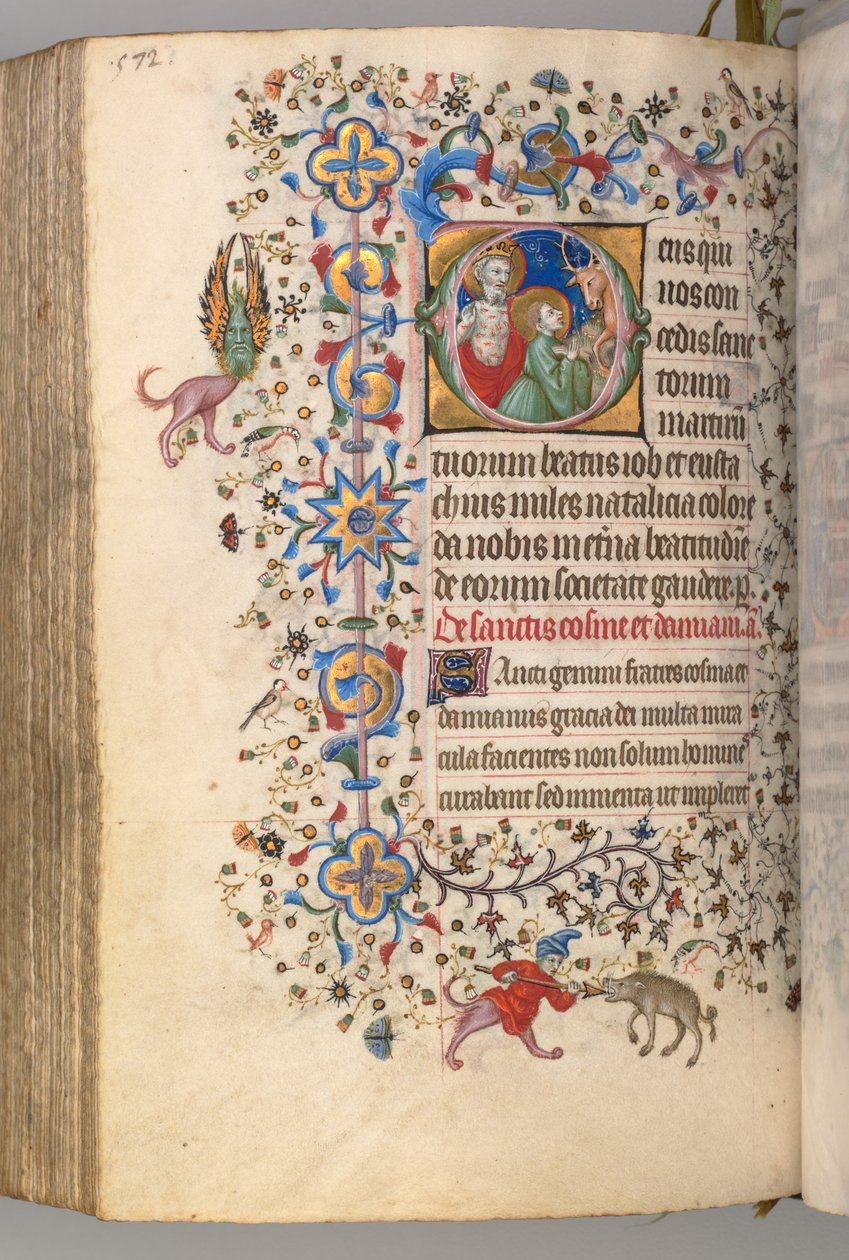 572.
Deus qui
nos con
cedis sanc
torum
martirũ
tuorum beatus iob et eusta
chius miles natalicia colore
da nobis in et̃na beatitudĩe
de eorum societate gaudere. p.
De sanctis cosme et damiani. ã.
Sancti gemini fratres cosma et
damianus gracia dei multa mira
cula facientes non solum homineᷤ
curabant sed iumenta ut impleret᷑